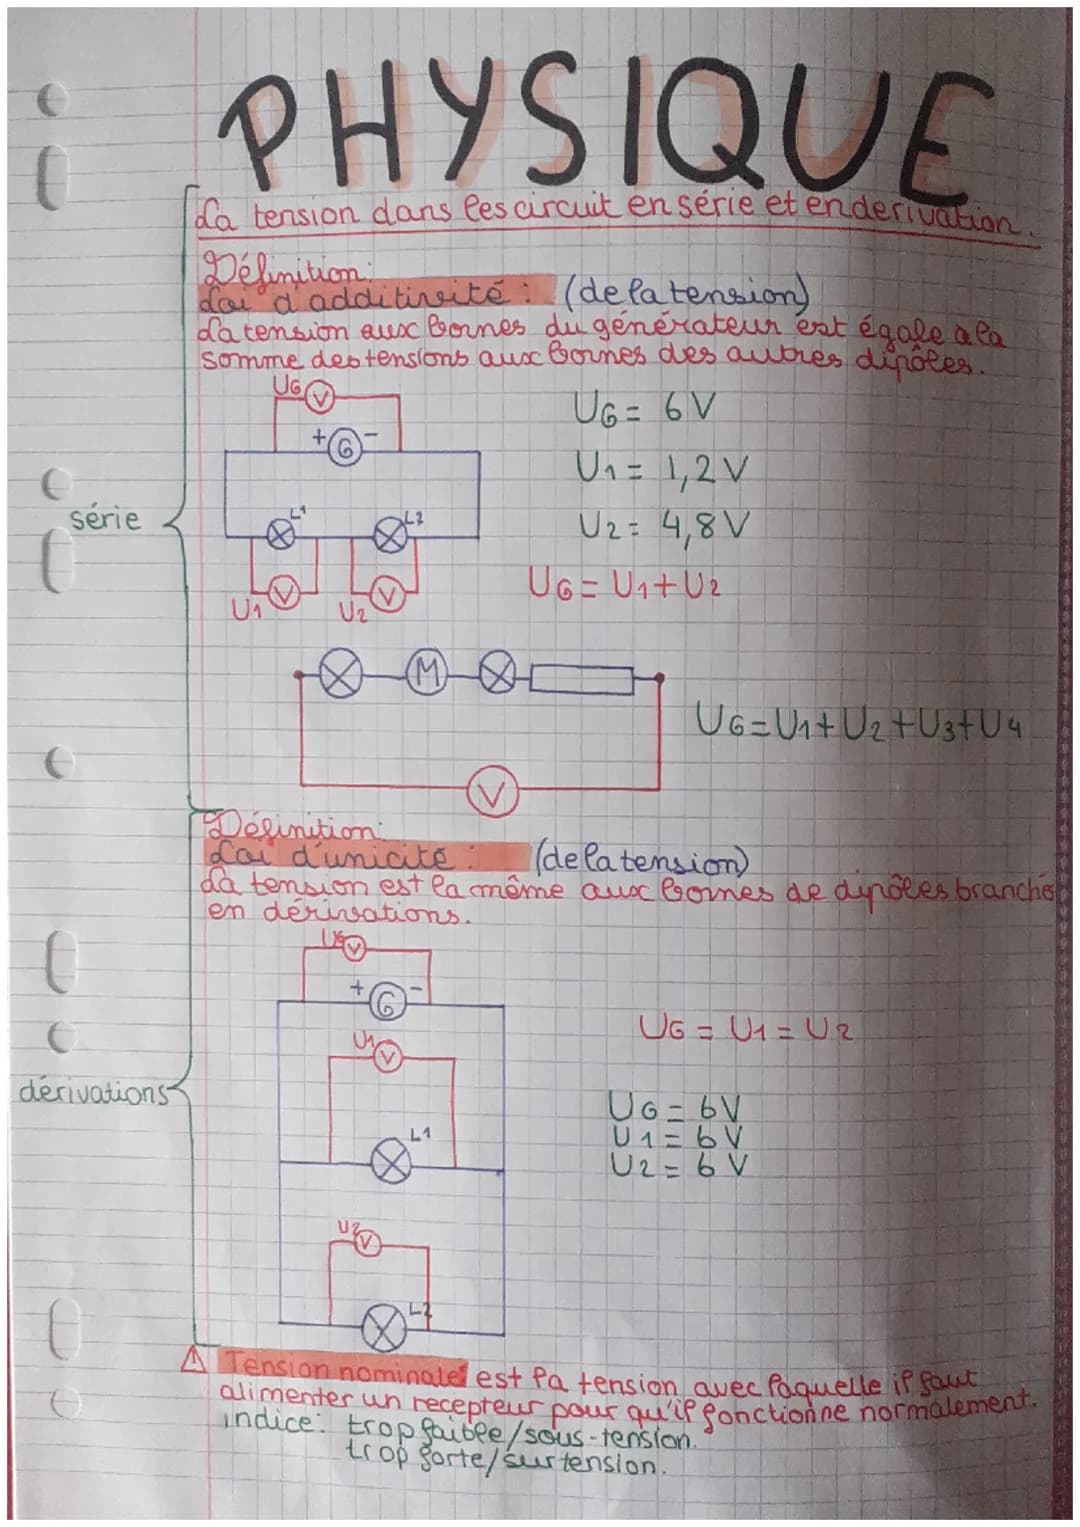 PHYSIQUE
La tension dans les circuit en série et en derivation.
Définition:
Loi d'additivité : (de la tension)
La tension aux bornes du générateur est égale a la
somme des tensions aux bornes des autres dipôles.
UG V
+ G -
L1 L2
V V
U1 U2
UG = 6V
U1 = 1,2V
U2 = 4,8V
UG = U1 + U2
série
M
V
UG = U1 + U2 + U3 + U4
Définition:
Loi d'unicité : (de la tension)
La tension est la même aux bornes de dipôles branchés
en dérivations.
UG V
+ G -
U1 V
L1
U2 V
L2
UG = U1 = U2
UG = 6V
U1 = 6V
U2 = 6V
dérivations
⚠ Tension nominale est la tension avec laquelle il faut
alimenter un recepteur pour qu'il fonctionne normalement.
indice: trop faible/sous-tension.
trop forte/surtension.